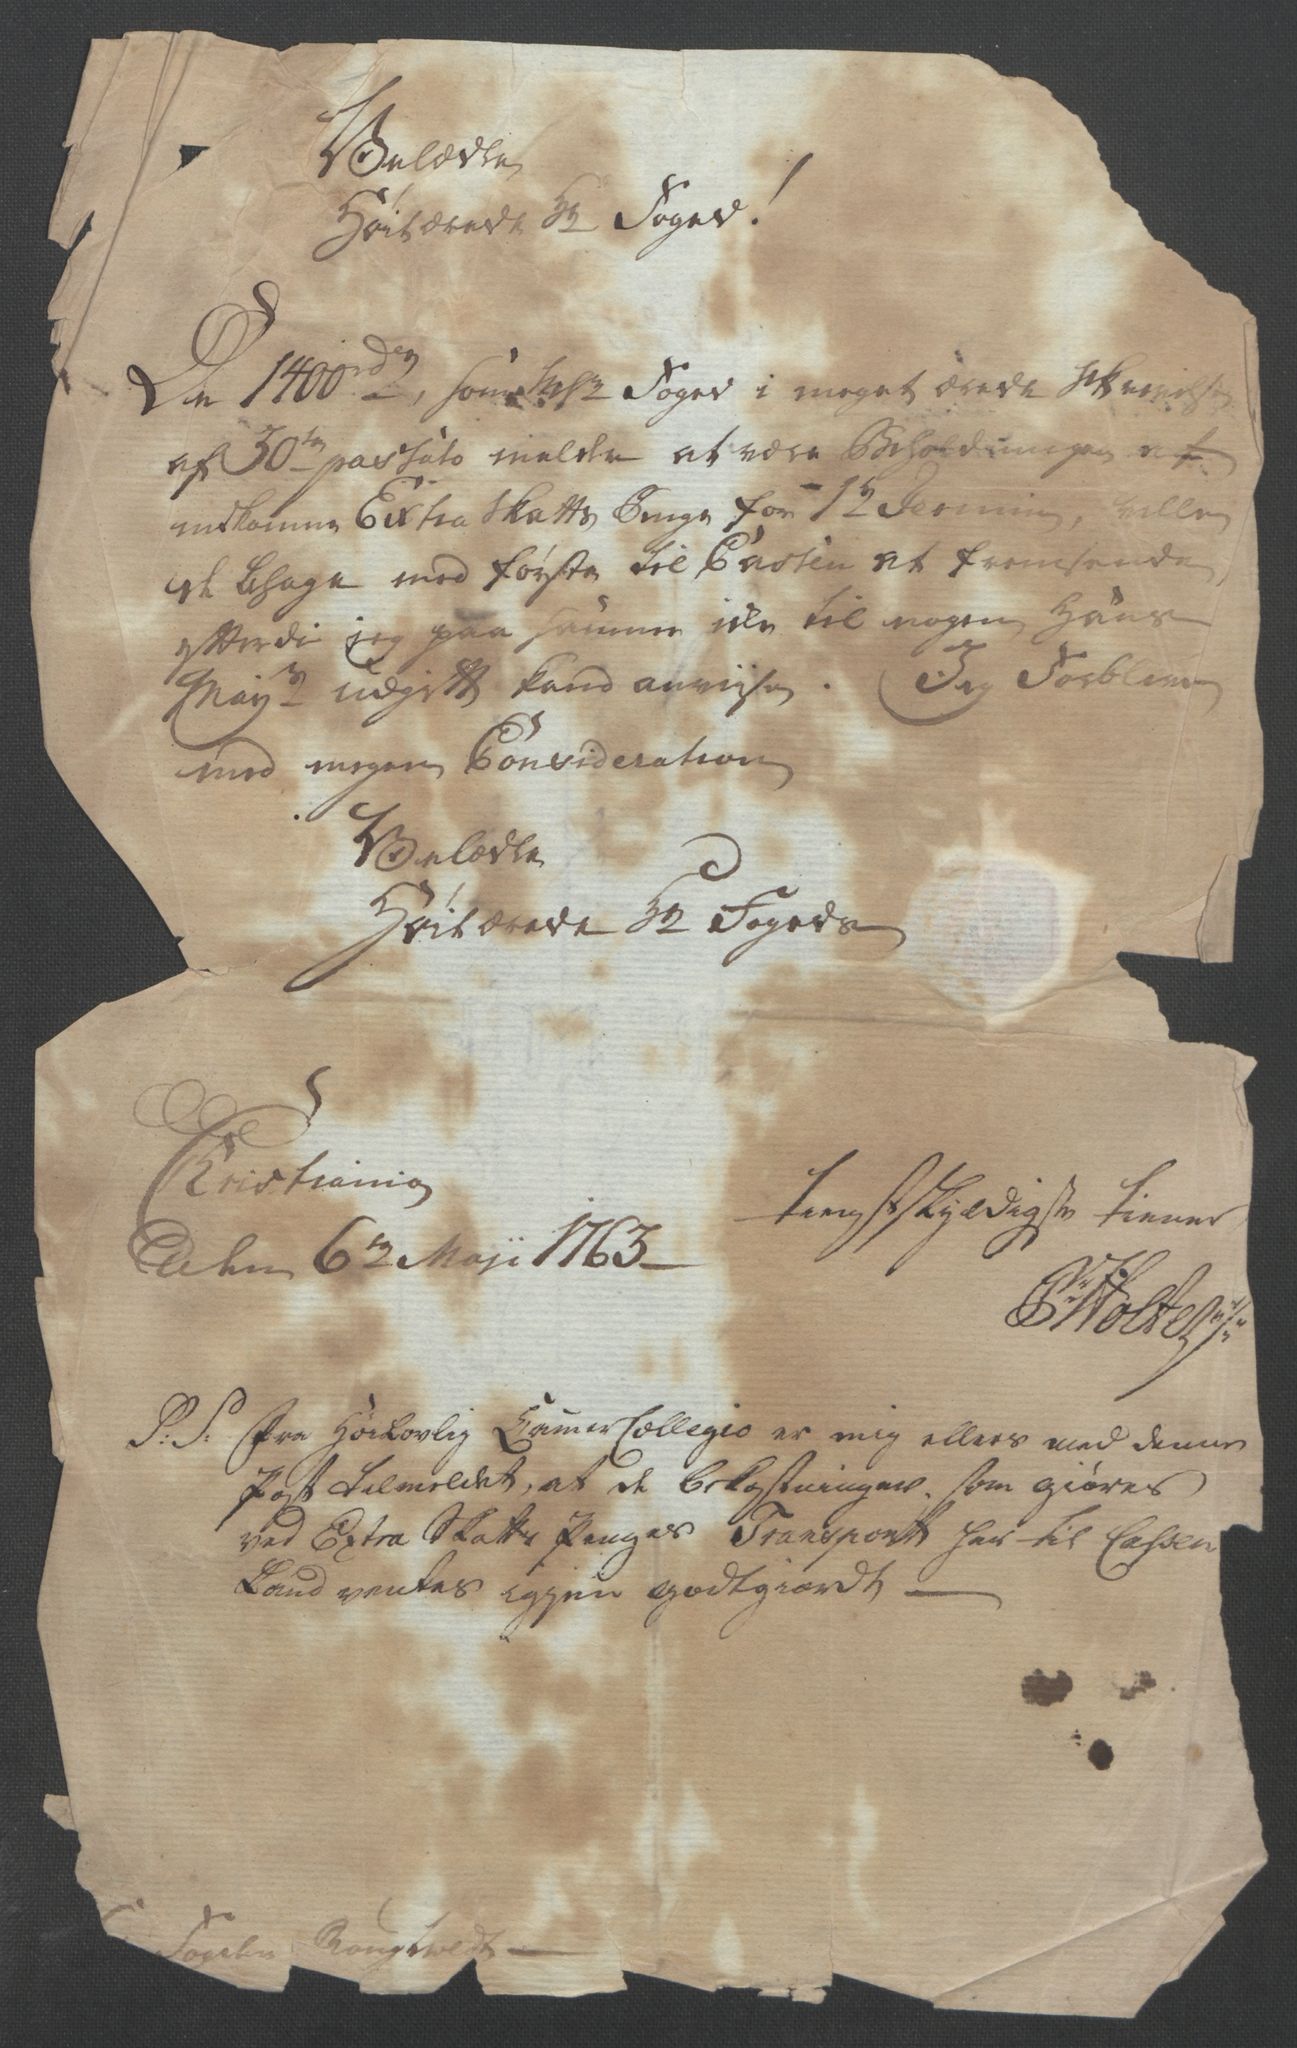 Velædle
Høitærede Hr Foged!
De 1400 rdr, som Hr Foged i meget ærede Skrivelse
af 30te passato melder at være Beholdningen af
indkomne Extra Skatts Penge for 1te Termin, ville
de behage med første til Casten at fremsende,
efterdi jeg paa samme ide til nogen Hans
Mayts udgift kand anviise. Jeg Forbliver
med megen Consideration
Velædle
Høitærede Hr Fogeds
Christiania
den 6te Maji 1763
tienstskyldigste tiener
Holte
P:S: fra Høilovlig Cammer Collegio er mig ellers med denne
Post tilmeldet, at de bekostninger, som giøres
ved Extra Skatts Penges Transportt her til Cassen
kand ventes igien godtgiordt
Fogden Rongtwedt